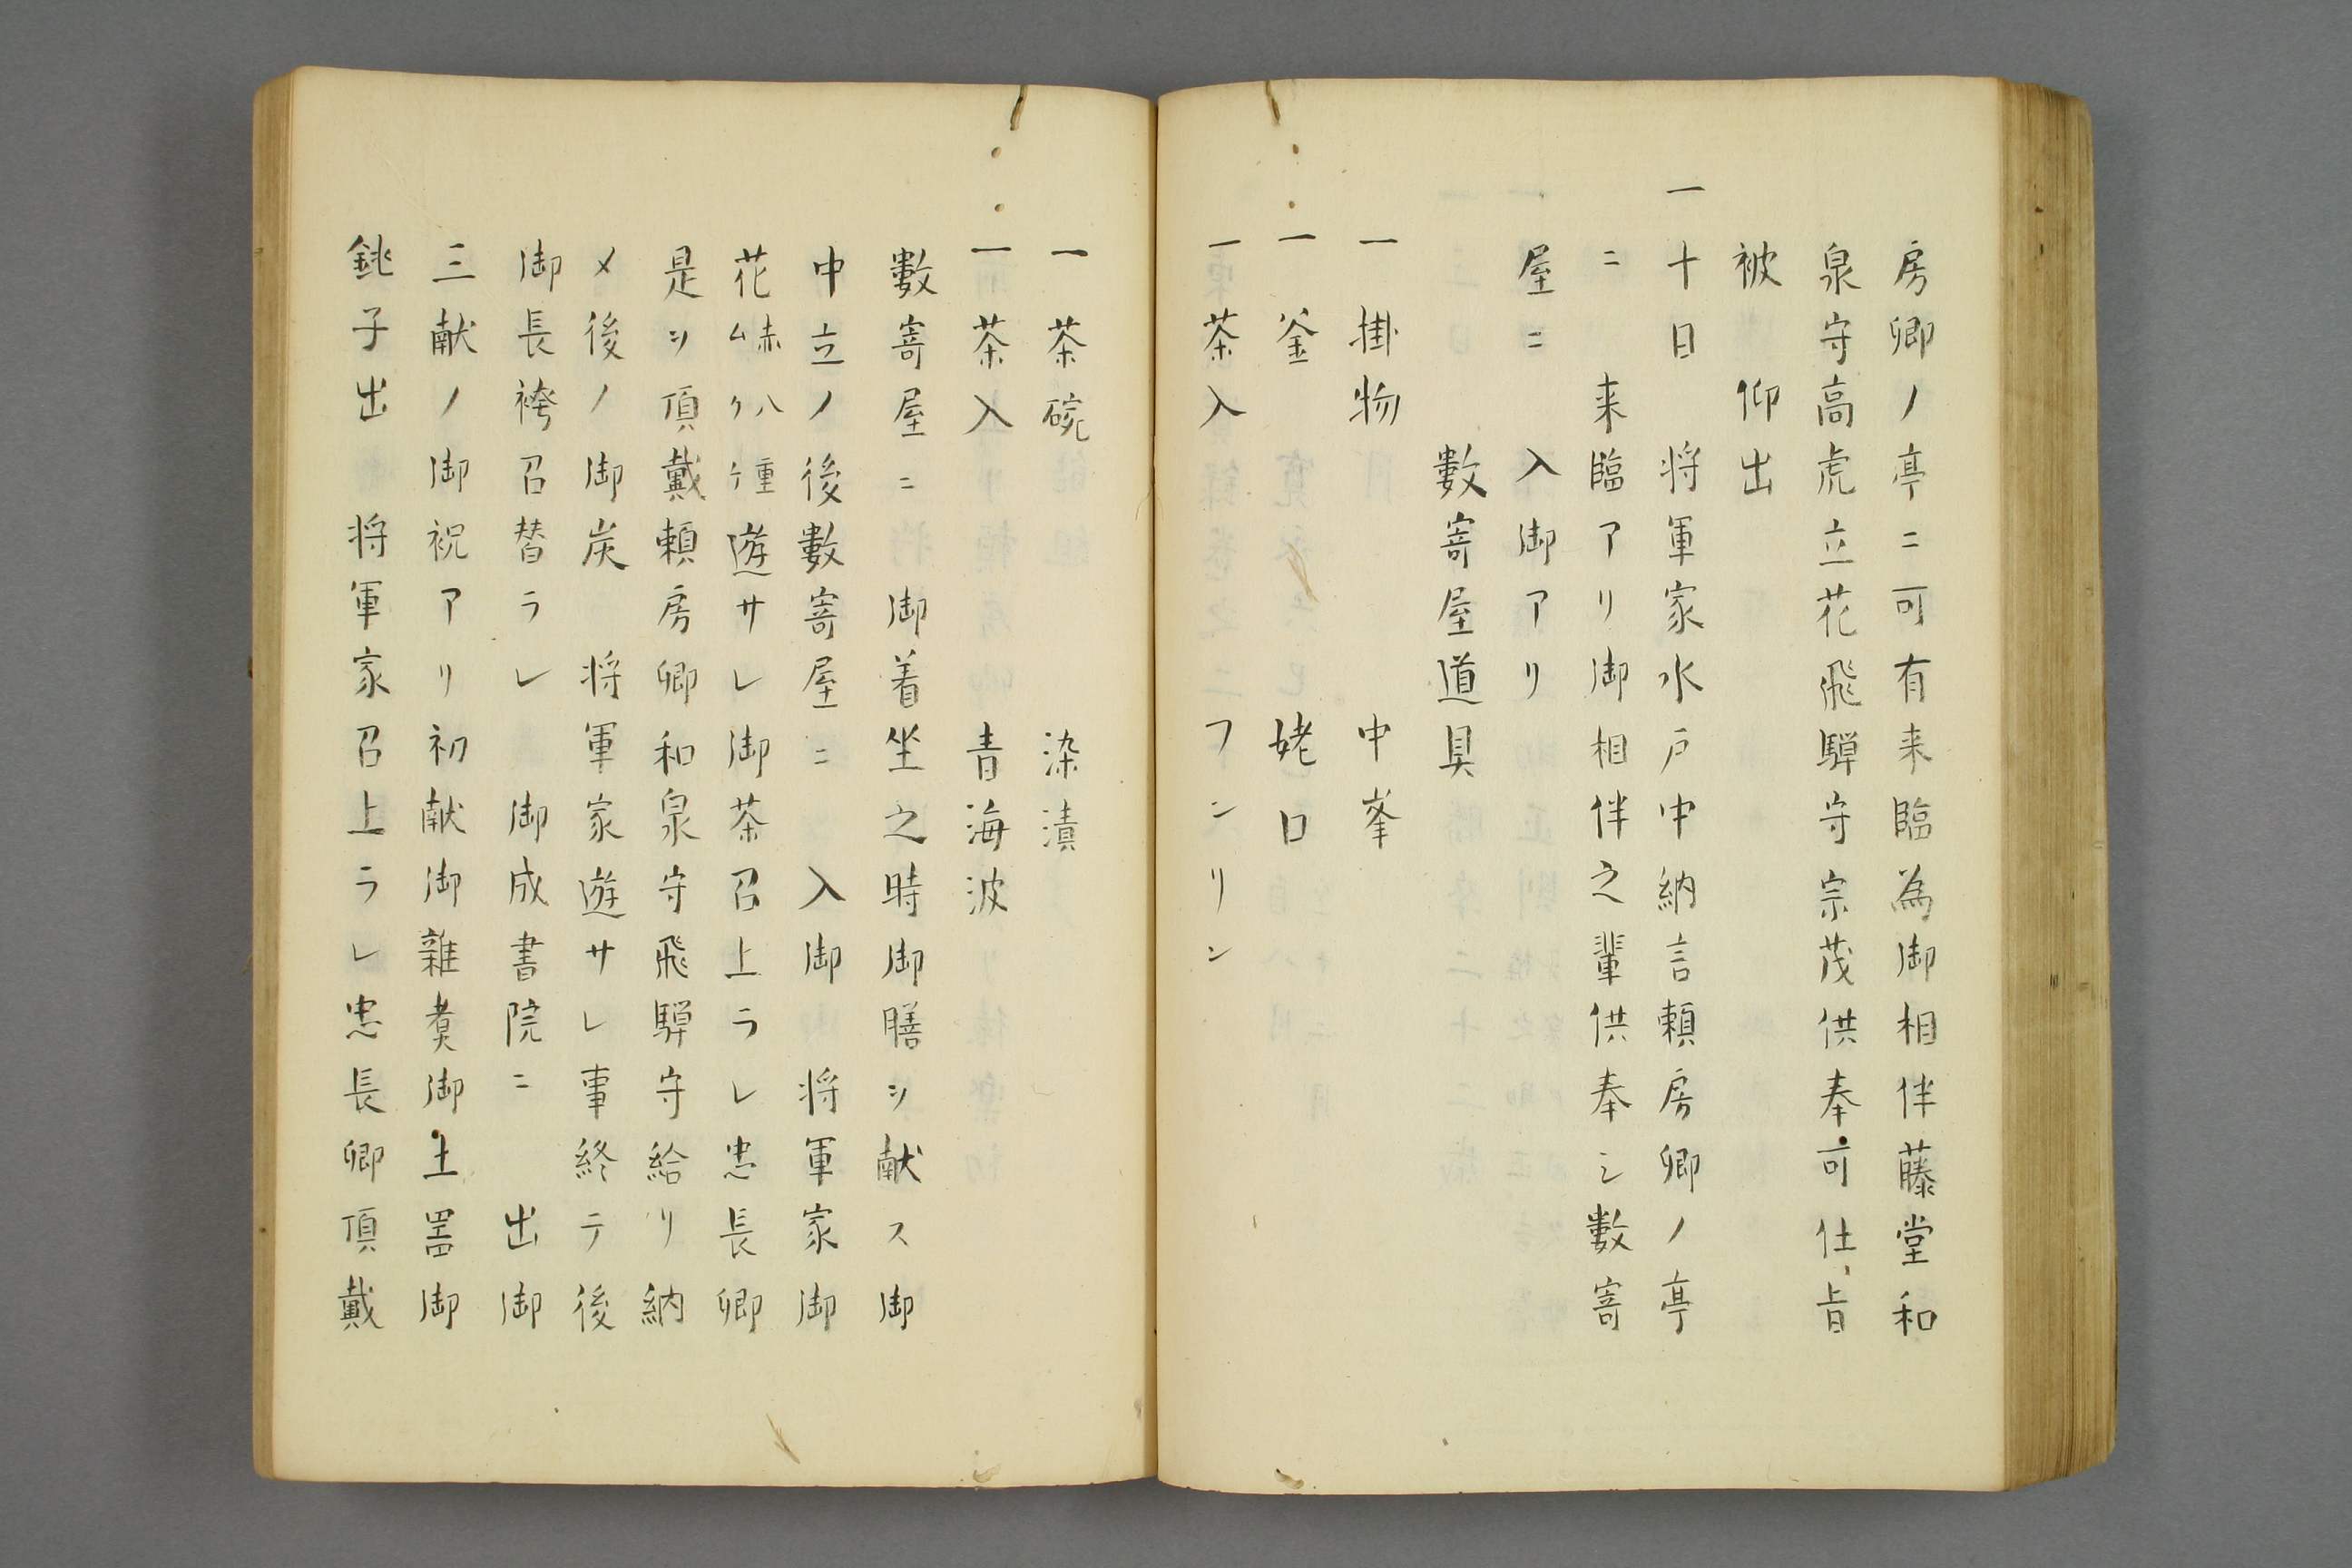 房卿ノ亭ニ可有来臨為御相伴藤堂和
泉守高虎立花飛騨守宗茂供奉可仕旨
被　仰出
一十日　将軍家水戸中納言頼房卿ノ亭
ニ　来臨アリ御相伴之輩供奉シ数寄
屋ニ　入御アリ
數寄屋道具
一　掛物　中峯
一　釜　姥口
一　茶入　フンリン
一　茶碗　染漬
一　茶入　青海波
數寄屋ニ　御着坐之時御膳ヲ献ス御
中立ノ後數寄屋ニ　入御　将軍家御
花
遊サレ御茶召上ラレ忠長卿
是ヲ頂戴頼房卿和泉守飛騨守給リ納
メ後ノ御炭　将軍家遊サレ事終テ後
御長袴召替ラレ　御成書院ニ　出御
三献ノ御祝アリ初献御雑煮御土器御
銚子出　将軍家召上ラレ忠長卿頂戴